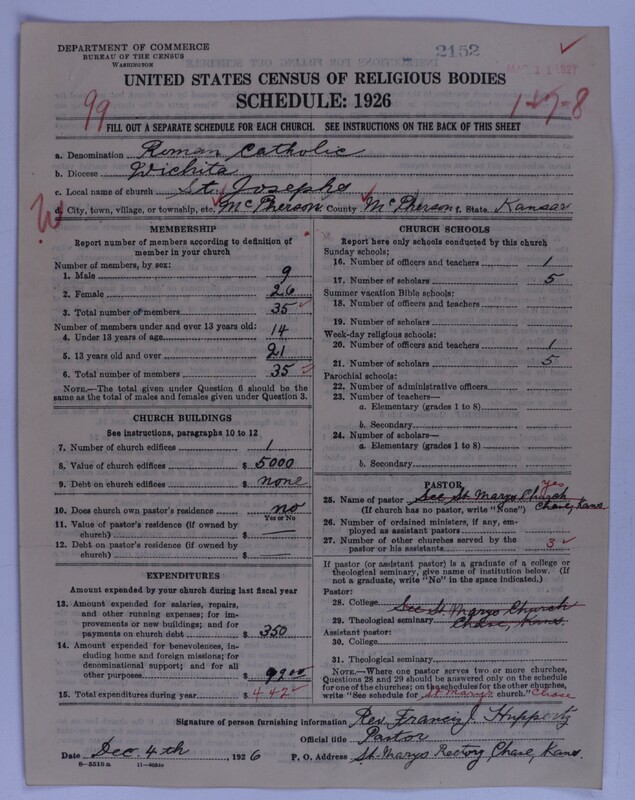 DEPARTMENT OF COMMERCE
BUREAU OF THE CENSUS
WASHINGTON
2152
11 1927
UNITED STATES CENSUS OF RELIGIOUS BODIES
SCHEDULE: 1926
99
1-17-8
FILL OUT A SEPARATE SCHEDULE FOR EACH CHURCH. SEE INSTRUCTIONS ON THE BACK OF THIS SHEET
a. Denomination Roman Catholic
b. Diocese Wichita
c. Local name of church St. Josephs
d. City, town, village, or township, etc. McPherson County McPherson f. State Kansas
MEMBERSHIP
Report number of members according to definition of member in your church
Number of members, by sex:
1. Male 9
2. Female 26
3. Total number of members 35
Number of members under and over 13 years old:
4. Under 13 years of age 14
5. 13 years old and over 21
6. Total number of members 35
NOTE.—The total given under Question 6 should be the same as the total of males and females given under Question 3.
CHURCH BUILDINGS
See instructions, paragraphs 10 to 12
7. Number of church edifices 1
8. Value of church edifices $ 5000
9. Debt on church edifices $ none
10. Does church own pastor's residence no
Yes or No
11. Value of pastor's residence (if owned by church) $ —
12. Debt on pastor's residence (if owned by church) $ —
EXPENDITURES
Amount expended by your church during last fiscal year
13. Amount expended for salaries, repairs, and other running expenses; for improvements or new buildings; and for payments on church debt $ 350
14. Amount expended for benevolences, including home and foreign missions; for denominational support; and for all other purposes $ 92.00
15. Total expenditures during year $ 442
CHURCH SCHOOLS
Report here only schools conducted by this church
Sunday schools:
16. Number of officers and teachers 1
17. Number of scholars 5
Summer vacation Bible schools:
18. Number of officers and teachers
19. Number of scholars
Week-day religious schools:
20. Number of officers and teachers 1
21. Number of scholars 5
Parochial schools:
22. Number of administrative officers
23. Number of teachers—
a. Elementary (grades 1 to 8)
b. Secondary
24. Number of scholars—
a. Elementary (grades 1 to 8)
b. Secondary
PASTOR
yes
25. Name of pastor See St. Marys Church
(If church has no pastor, write "None") Chase, Kans
26. Number of ordained ministers, if any, employed as assistant pastors
27. Number of other churches served by the pastor or his assistants 3
If pastor (or assistant pastor) is a graduate of a college or theological seminary, give name of institution below. (If not a graduate, write "No" in the space indicated.)
Pastor:
28. College See St Marys Church
29. Theological seminary Chase, Kans.
Assistant pastor:
30. College
31. Theological seminary
NOTE.—Where one pastor serves two or more churches, Questions 28 and 29 should be answered only on the schedule for one of the churches; on the schedules for the other churches, write "See schedule for St Marys church." Chase
Signature of person furnishing information Rev. Francis J. Huppertz
Official title Pastor
Date Dec. 4th, 1926 P. O. Address St. Marys Rectory, Chase, Kans.